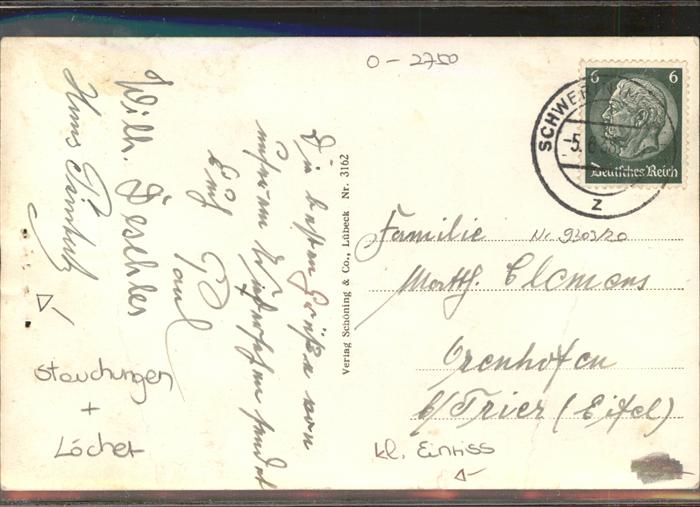 O-2750
6 6
Deutsches Reich
SCHWERIN
-5.6.
Z
Familie Nr. 9303/20
Matth. Clemens
Orenhofen
b/Trier (Eifel)
kl. Einriss
Verlag Schöning & Co., Lübeck Nr. 3162
Die besten Grüße von
unserem Wiedersehen sendet
Euch
Paul
Wilh. Deschler
Hans
Stauchungen
+
Löcher